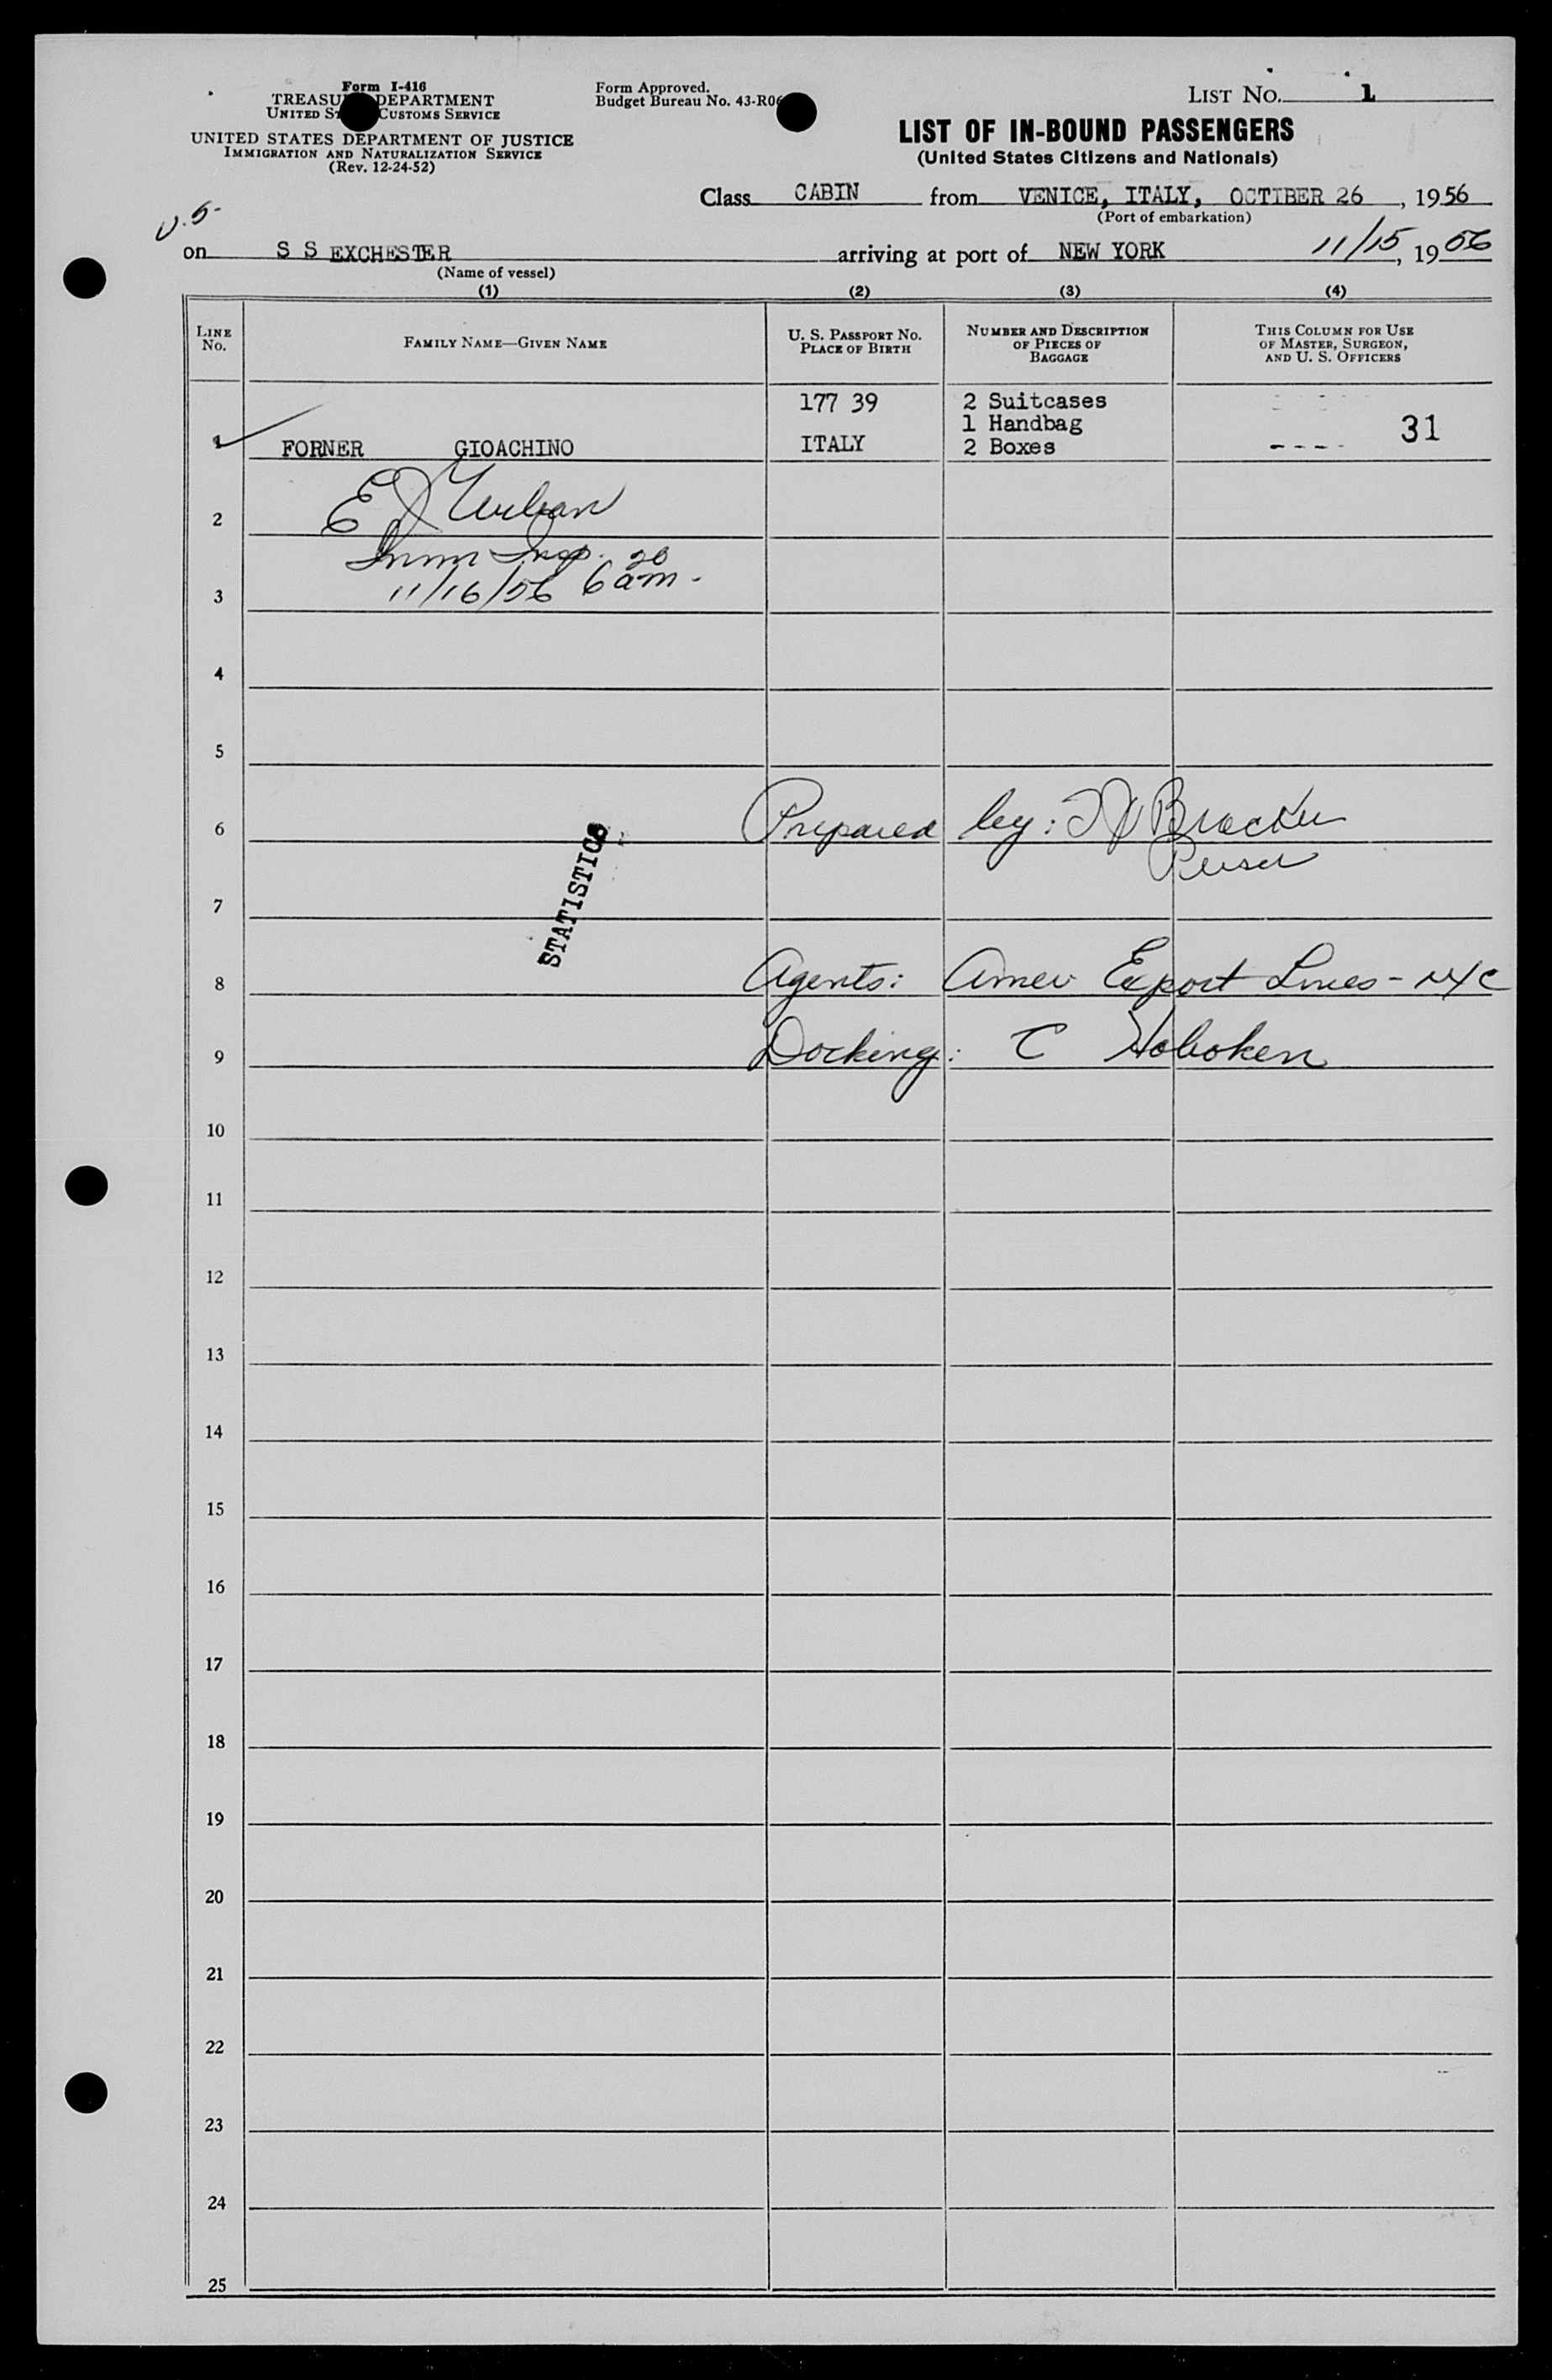 Form I-416
TREASU DEPARTMENT
UNITED ST CUSTOMS SERVICE
UNITED STATES DEPARTMENT OF JUSTICE
IMMIGRATION AND NATURALIZATION SERVICE
(Rev. 12-24-52)
Form Approved.
Budget Bureau No. 43-R06
LIST NO. 1
LIST OF IN-BOUND PASSENGERS
(United States Citizens and Nationals)
Class CABIN from VENICE, ITALY, OCTIBER 26, 1956
(Port of embarkation)
on S S EXCHESTER arriving at port of NEW YORK 11/15, 1956
(Name of vessel)
(1) (2) (3) (4)
LINE NO. FAMILY NAME—GIVEN NAME U. S. PASSPORT NO. PLACE OF BIRTH NUMBER AND DESCRIPTION OF PIECES OF BAGGAGE THIS COLUMN FOR USE OF MASTER, SURGEON, AND U. S. OFFICERS
177 39 2 Suitcases
1 Handbag 31
1 FORNER GIOACHINO ITALY 2 Boxes
2 E
Imm Insp.
3 11/16/56 6 20 am -
4
5
6 Prepared by:
Purser
STATISTICS
7
8 Agents: Amer Export Lines - NYC
9 Docking: C Hoboken
10
11
12
13
14
15
16
17
18
19
20
21
22
23
24
25